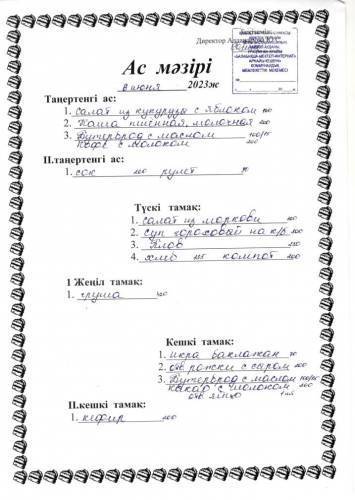 Директор
Ас мәзірі
8 июня 2023ж
Таңертеңгі ас:
1. салат из кукурузы с яблоком 100
2. Каша пшенная, молочная 200
3. Бутерброд с маслом
кофе с молоком 200
II.таңертеңгі ас:
1. сок 200 рулет
Түскі тамақ:
1. салат из моркови 100
2. суп гороховый на к/б 200
3. Плов
4. хлеб компот 200
I Жеңіл тамақ:
1. груша
Кешкі тамақ:
1. икра баклажан
2. отв. рожки с сыром 200
3. Бутерброд с маслом
какао с молоком 200
отв. яйцо 1 шт
II.кешкі тамақ:
1. кефир 200